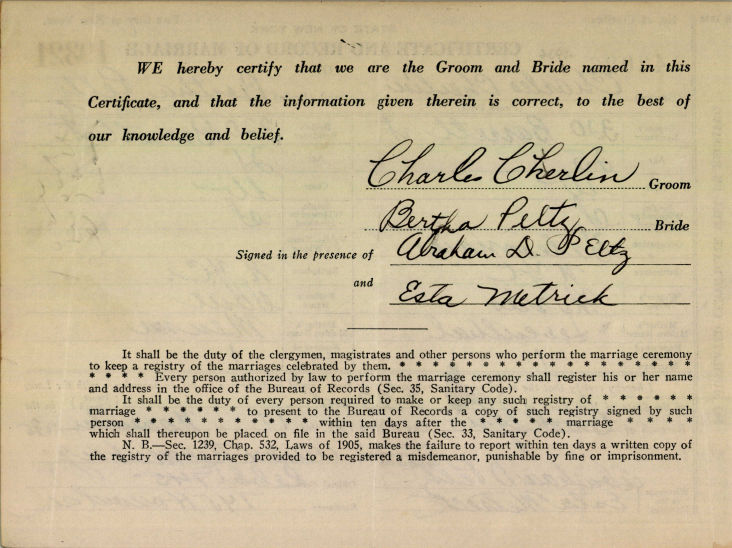 WE hereby certify that we are the Groom and Bride named in this
Certificate, and that the information given therein is correct, to the best of
our knowledge and belief.
Charles Cherlin Groom
Bertha Peltz Bride
Signed in the presence of Abraham D. Peltz
and Esta Metrick
It shall be the duty of the clergymen, magistrates and other persons who perform the marriage ceremony
to keep a registry of the marriages celebrated by them. * * * * * * * * * * * * * * * * * *
* * * * Every person authorized by law to perform the marriage ceremony shall register his or her name
and address in the office of the Bureau of Records (Sec. 35, Sanitary Code).
It shall be the duty of every person required to make or keep any such registry of * * * * * *
marriage * * * * * * to present to the Bureau of Records a copy of such registry signed by such
person * * * * * * * * * * within ten days after the * * * * marriage * * * *
which shall thereupon be placed on file in the said Bureau (Sec. 33, Sanitary Code).
N. B.—Sec. 1239, Chap. 532, Laws of 1905, makes the failure to report within ten days a written copy of
the registry of the marriages provided to be registered a misdemeanor, punishable by fine or imprisonment.